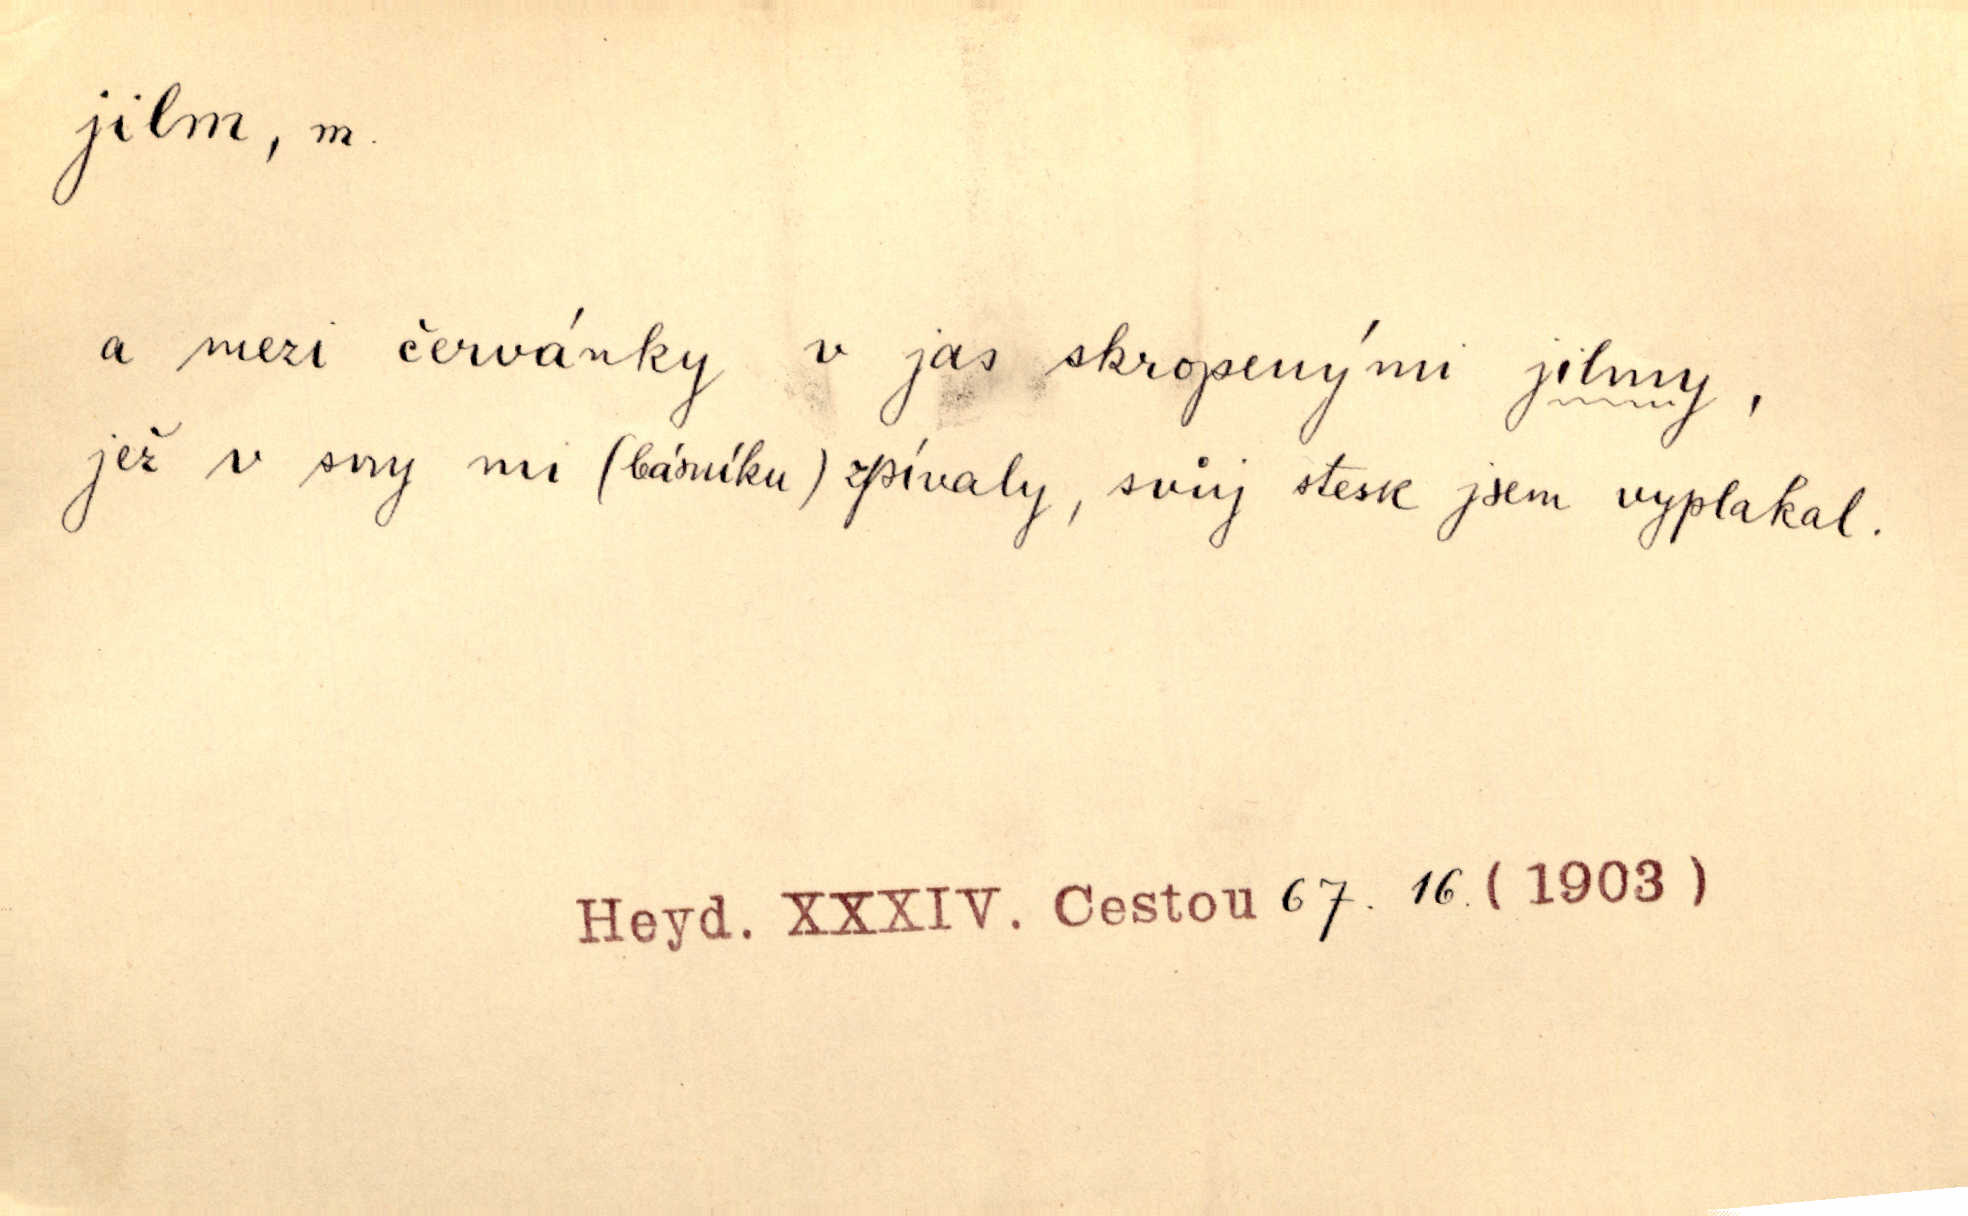 jilm, m.
a mezi červánky v jas skropenými jilmy,
jež v sny mi (básníku) zpívaly, svůj stesk jsem vyplakal.
Heyd. XXXIV. Cestou 67. 16. (1903)